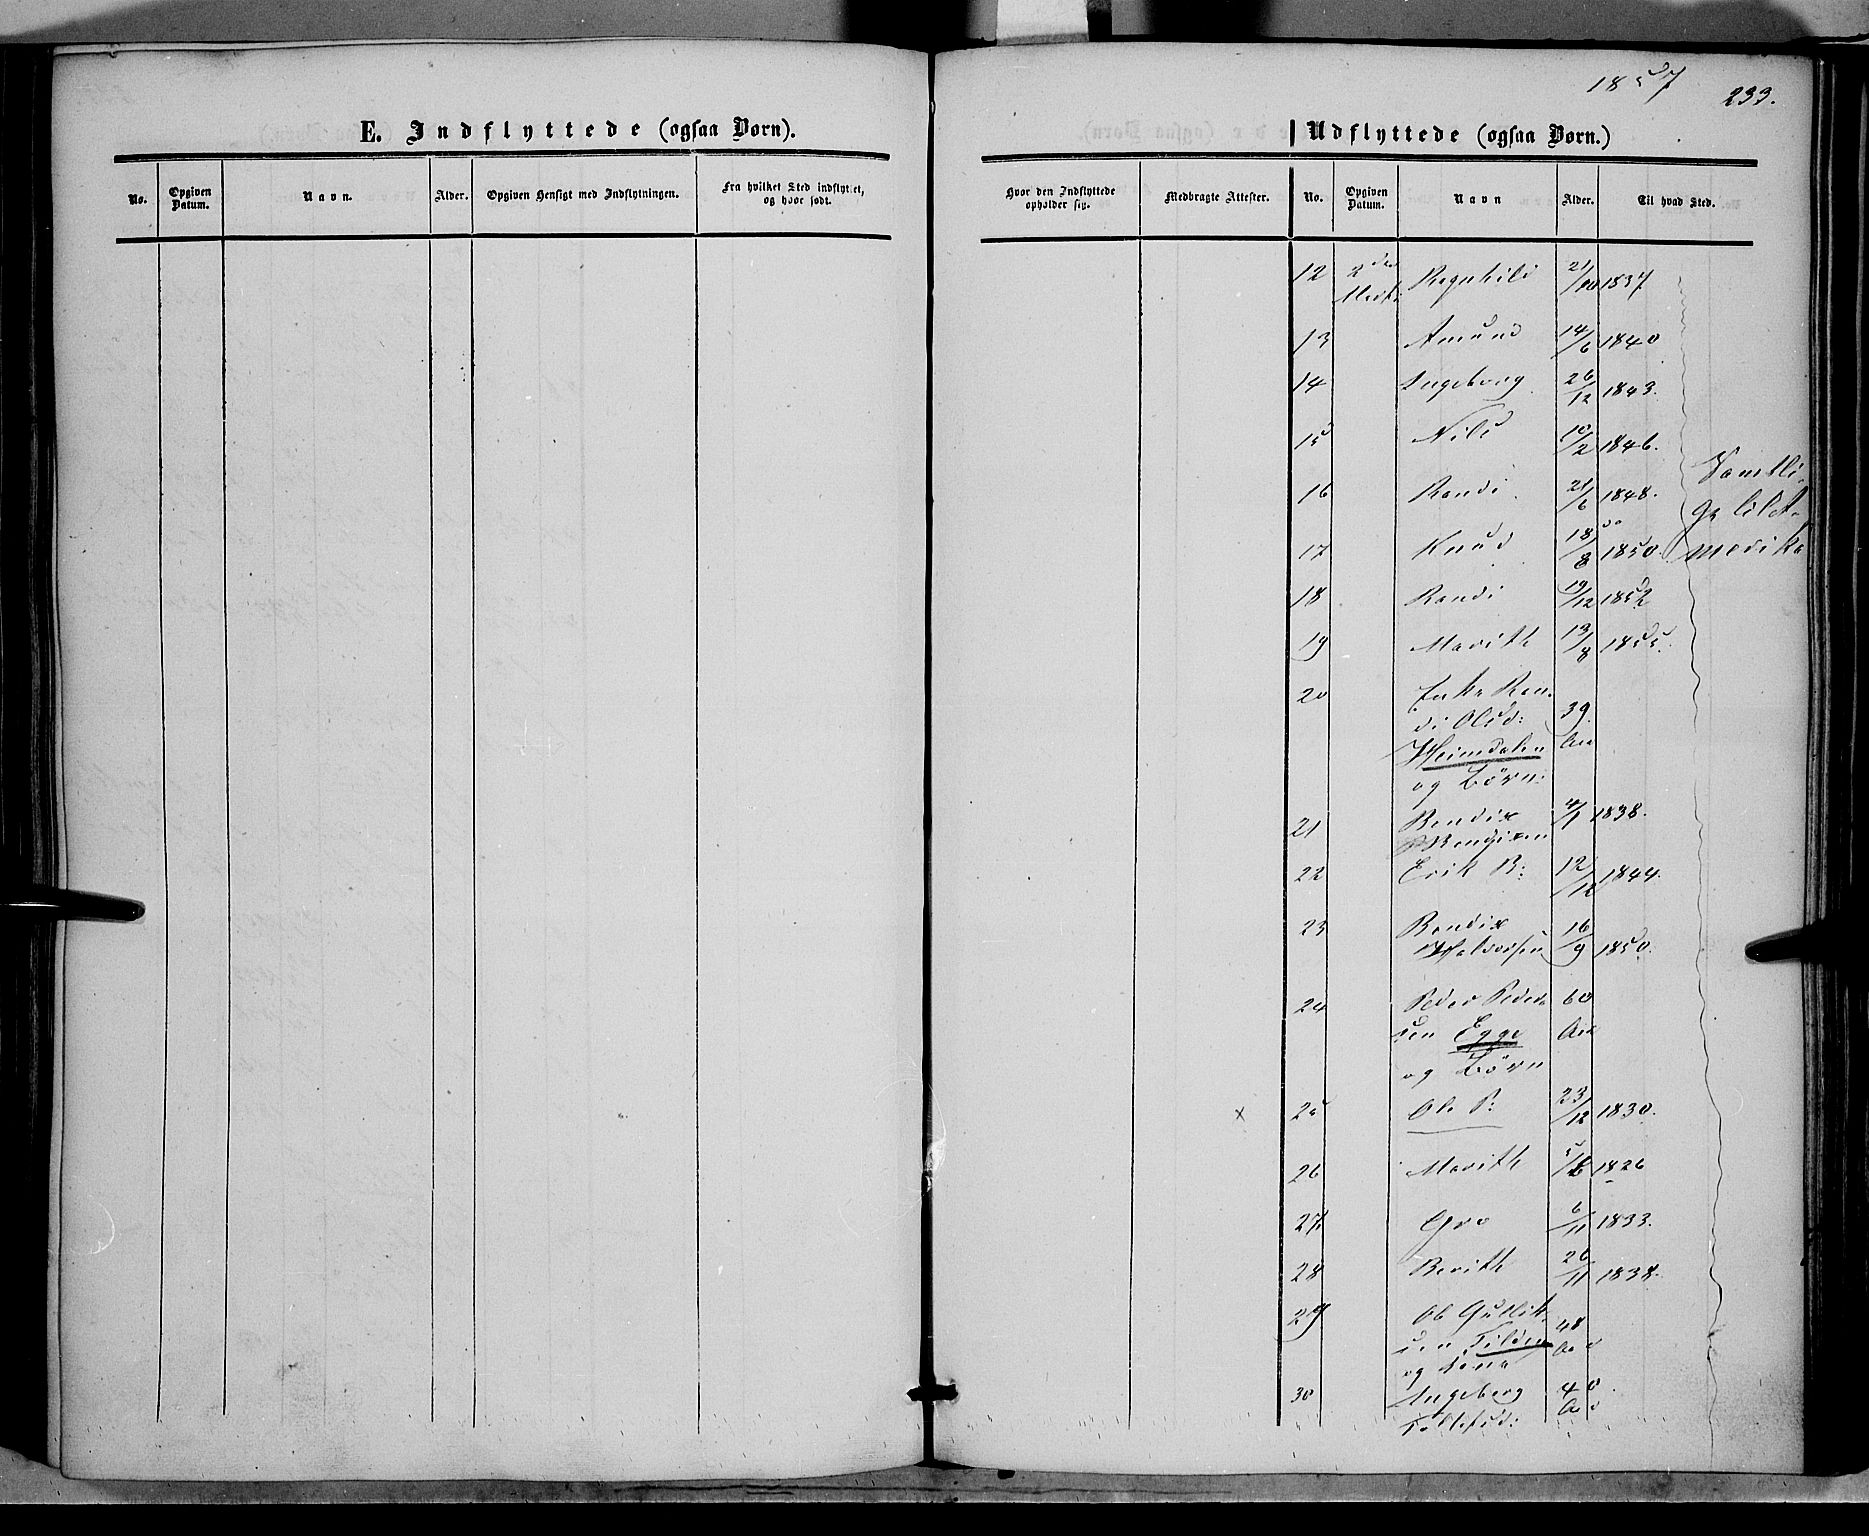 1857
233.
E. Indflyttede (ogsaa Børn).
Udflyttede (ogsaa Børn.)
No. Opgiven Datum. Navn. Alder. Opgiven Hensigt med Indflytningen. Fra hvilket Sted indflyttet, og hvor født.
Hvor den Indflyttede opholder sig. Medbragte Attester. No. Opgiven Datum. Navn Alder. Til hvad Sted.
12 2den Ragnhild 21/10 1837
13 Amund 14/6 1840
14 Ingeborg 26/12 1843.
15 Nils 10/2 1846.
16 Randi 21/6 1848.
17 Knud 18/8 1850
18 Randi 19/12 1852
19 Marith 13/8 1855.
Samtli-
ge til A-
merika
20 Enke Ran-
di Olsd: 39
Heimdalen Aar
og Børn:
21 Bendix 4/1 1838.
Bendixen
22 Erik B: 12/12 1844.
23 Bendix 16/9 1850.
Halvorsen
24 Peder Peder- 60
sen Egge Aar
og Børn
x 25 Ole P: 23/12 1830.
26 Marith 5/6 1826
27 Gro 6/11 1833.
28 Berith 26/11 1838.
29 Ole Gullik- 48
sen Aar
og Kone
30 Ingeborg 40
Tollefsd: Aar